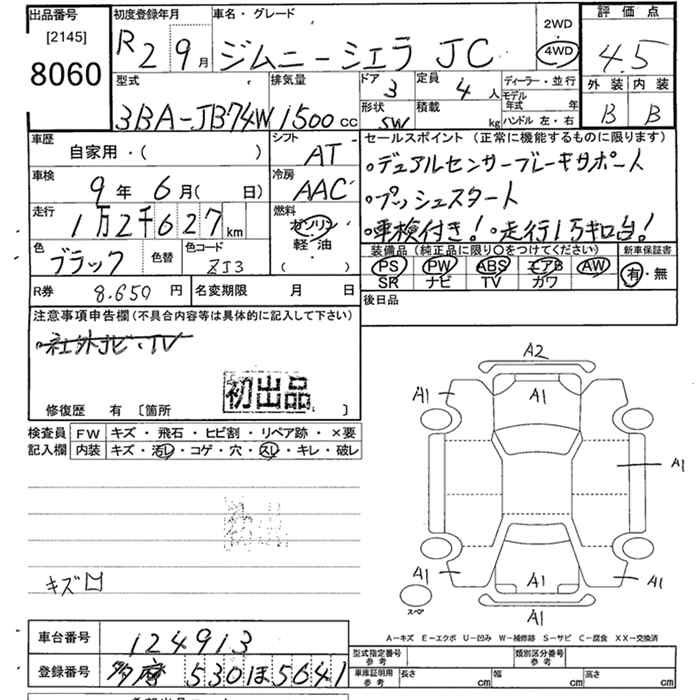 出品番号 初度登録年月 車名・グレード 2WD 評価点
[2145] R2 9月 ジムニーシエラ JC 4WD 4.5
8060 型式 排気量 ドア 定員 ディーラー・並行 外装 内装
3BA-JB74W 1500cc 3 4人 モデル年式 年 B B
形状 積載 ハンドル 左・右
SW kg
車歴 シフト セールスポイント (正常に機能するものに限ります)
自家用・( ) AT ・デュアルセンサーブレーキサポート
車検 冷房 ・プッシュスタート
9年 6月( 日) AAC ・車検付き!・走行1万キロ台!
走行 燃料
1万2千627km ガソリン
軽油
( )
装備品 (純正品に限り○をつけてください) 新車保証書
色 色替 色コード PS PW ABS エアB AW 有・無
ブラック ZJ3 SR ナビ TV カワ
R券 8.650円 名変期限 月 日 後日品
注意事項申告欄 (不具合内容等は具体的に記入して下さい)
・社外ナビ・TV
初出品
修復歴 有 [箇所 ]
検査員 FW キズ・飛石・ヒビ割・リペア跡・×要
記入欄 内装 キズ・汚レ・コゲ・穴・スレ・キレ・破レ
A2
A1 A1 A1
A1
キズ A1 A1 A1
スペア A1
A-キズ E-エクボ U-凹み W-補修跡 S-サビ C-腐食 XX-交換済
車台番号 124913
型式指定番号 参考 類別区分番号 参考
登録番号 多摩 530 ほ 5641
車庫証明用 参考 長さ cm 幅 cm 高さ cm